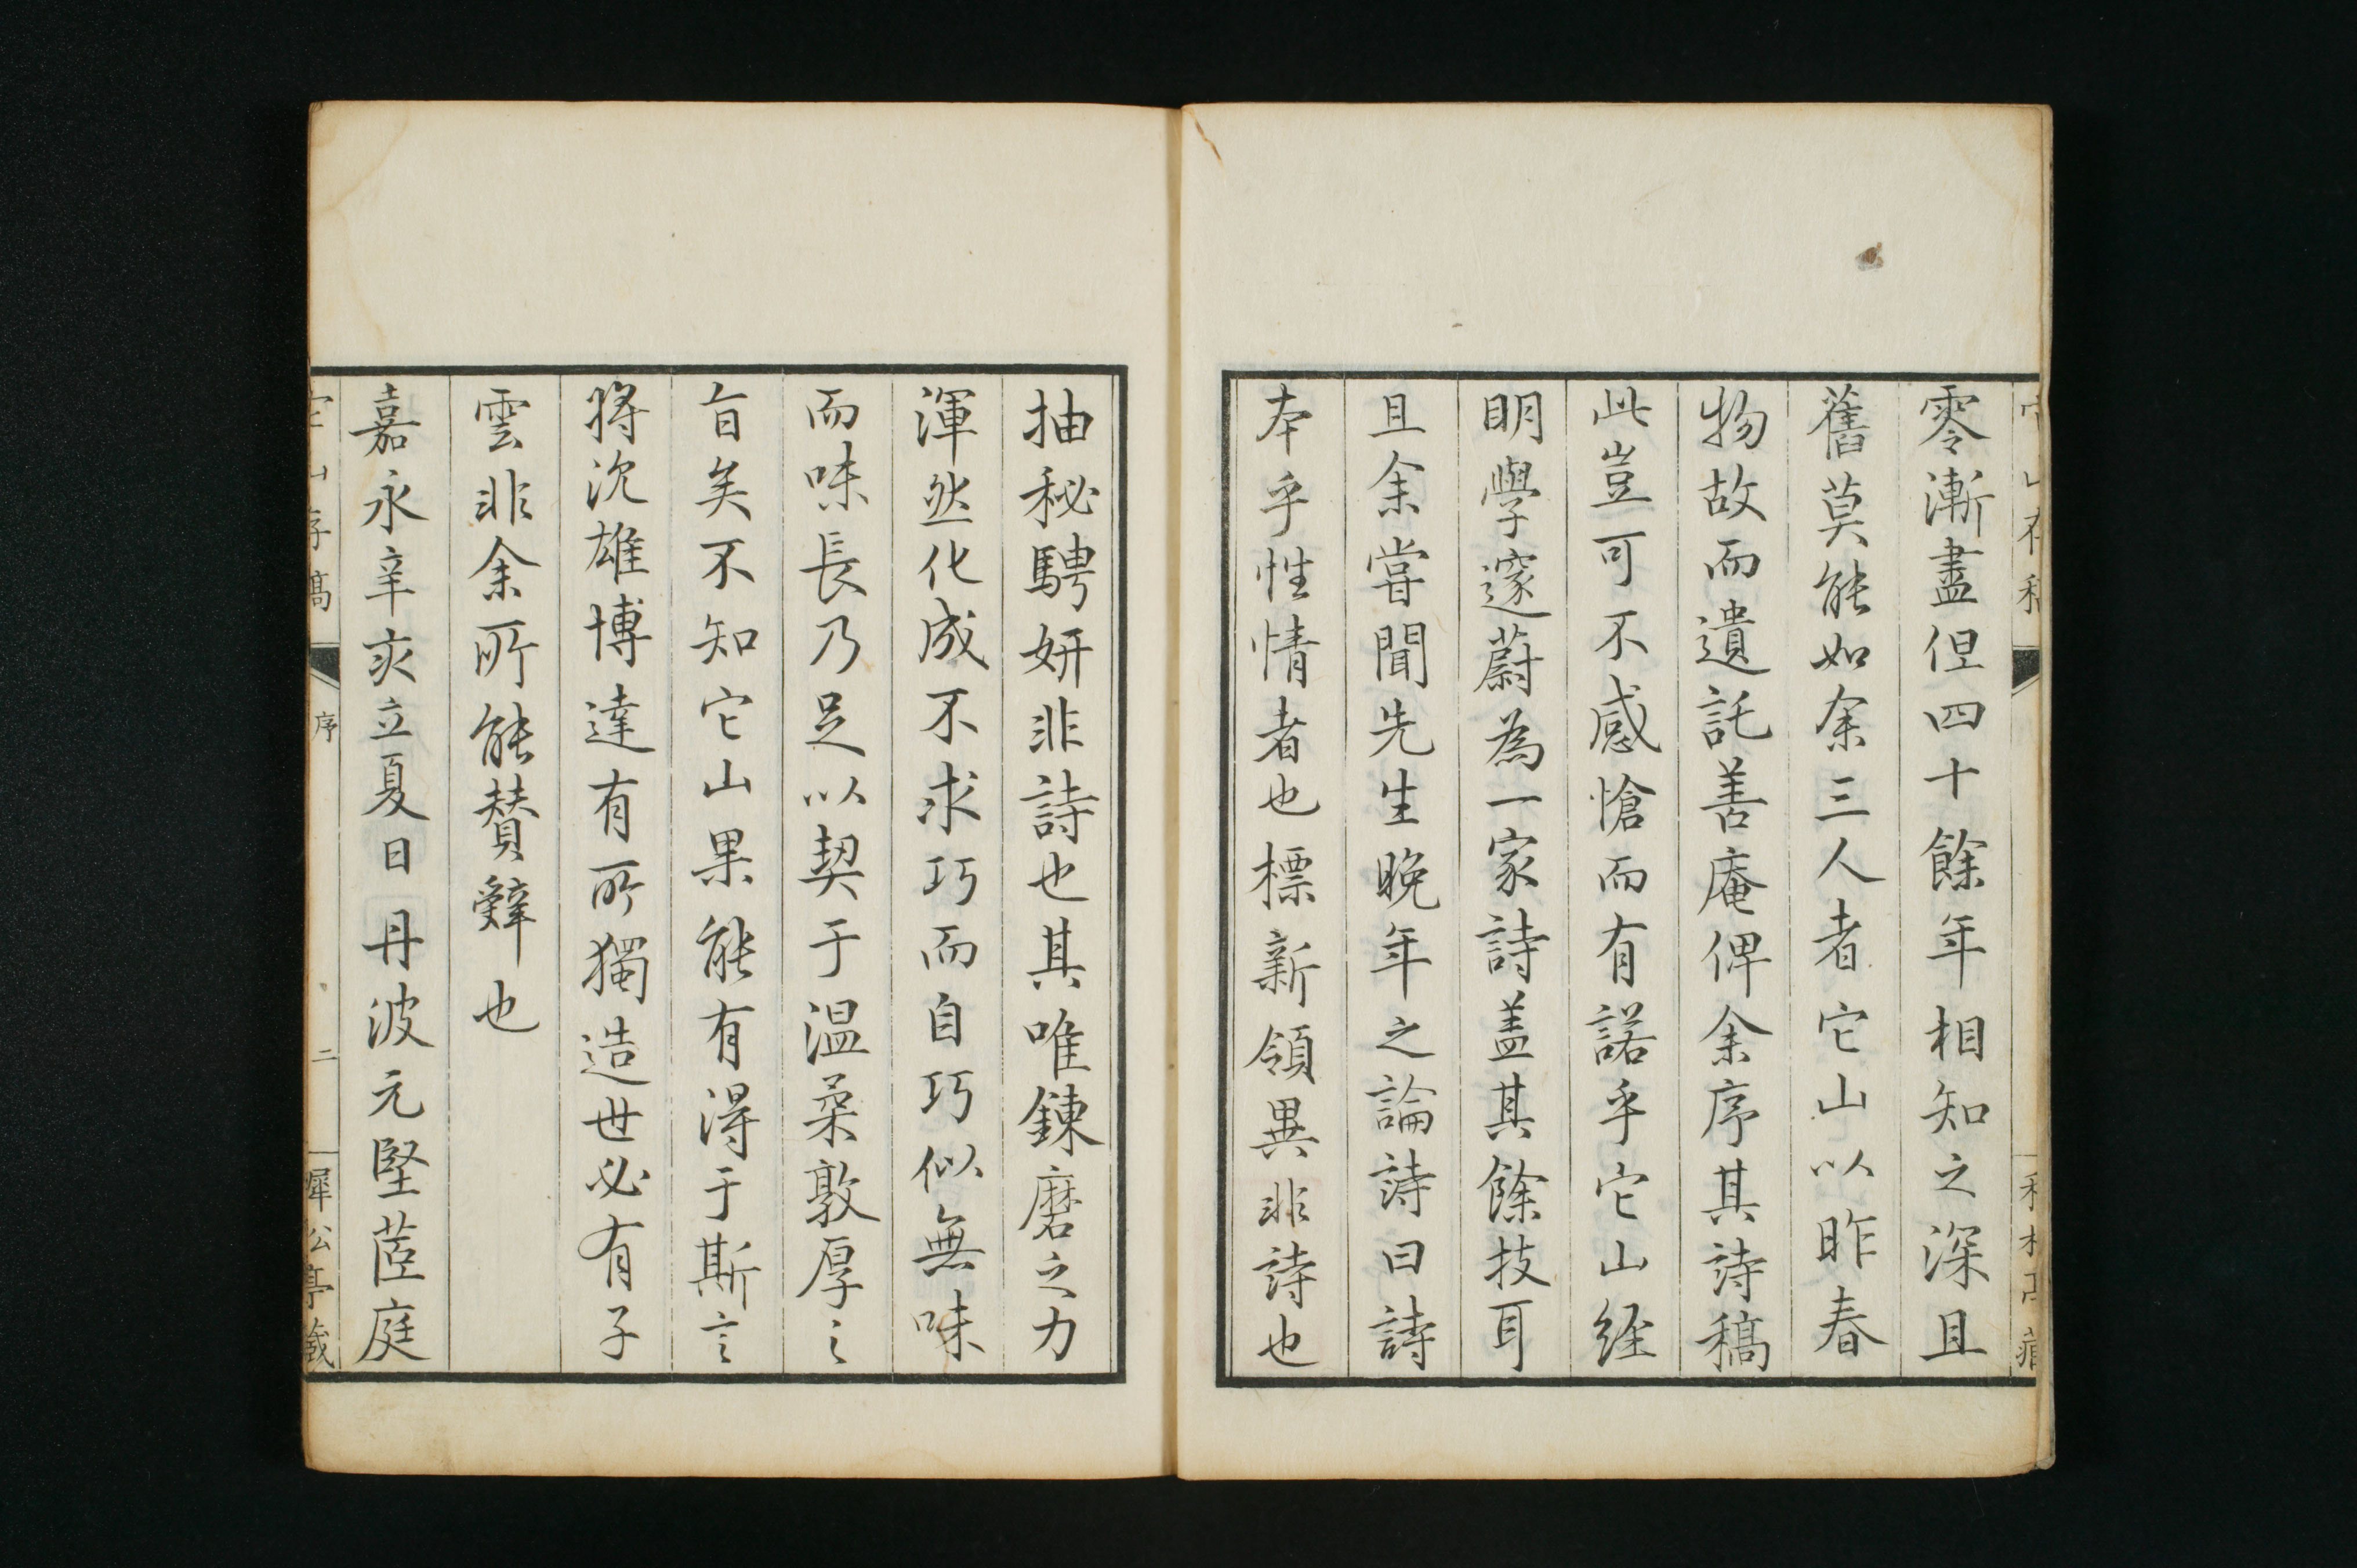 零漸盡但四十餘年相知之深且
舊莫能如余三人者它山以昨春
物故而遺託善庵俾余序其詩稿
此豈可不感愴而有諾乎它山經
明學邃蔚為一家詩蓋其餘技耳
且余嘗聞先生晚年之論詩曰詩
本乎性情者也標新領異非詩也
抽秘騁妍非詩也其唯鍊磨之力
渾然化成不求巧而自巧似無味
而味長乃足以契于温柔敦厚之
旨矣不知它山果能有得于斯言
將沈雄博達有所獨造世必有子
雲非余所能贊辭也
嘉永辛亥立夏日 丹波元堅茝庭
它山存稿
序
二
犀公亭藏